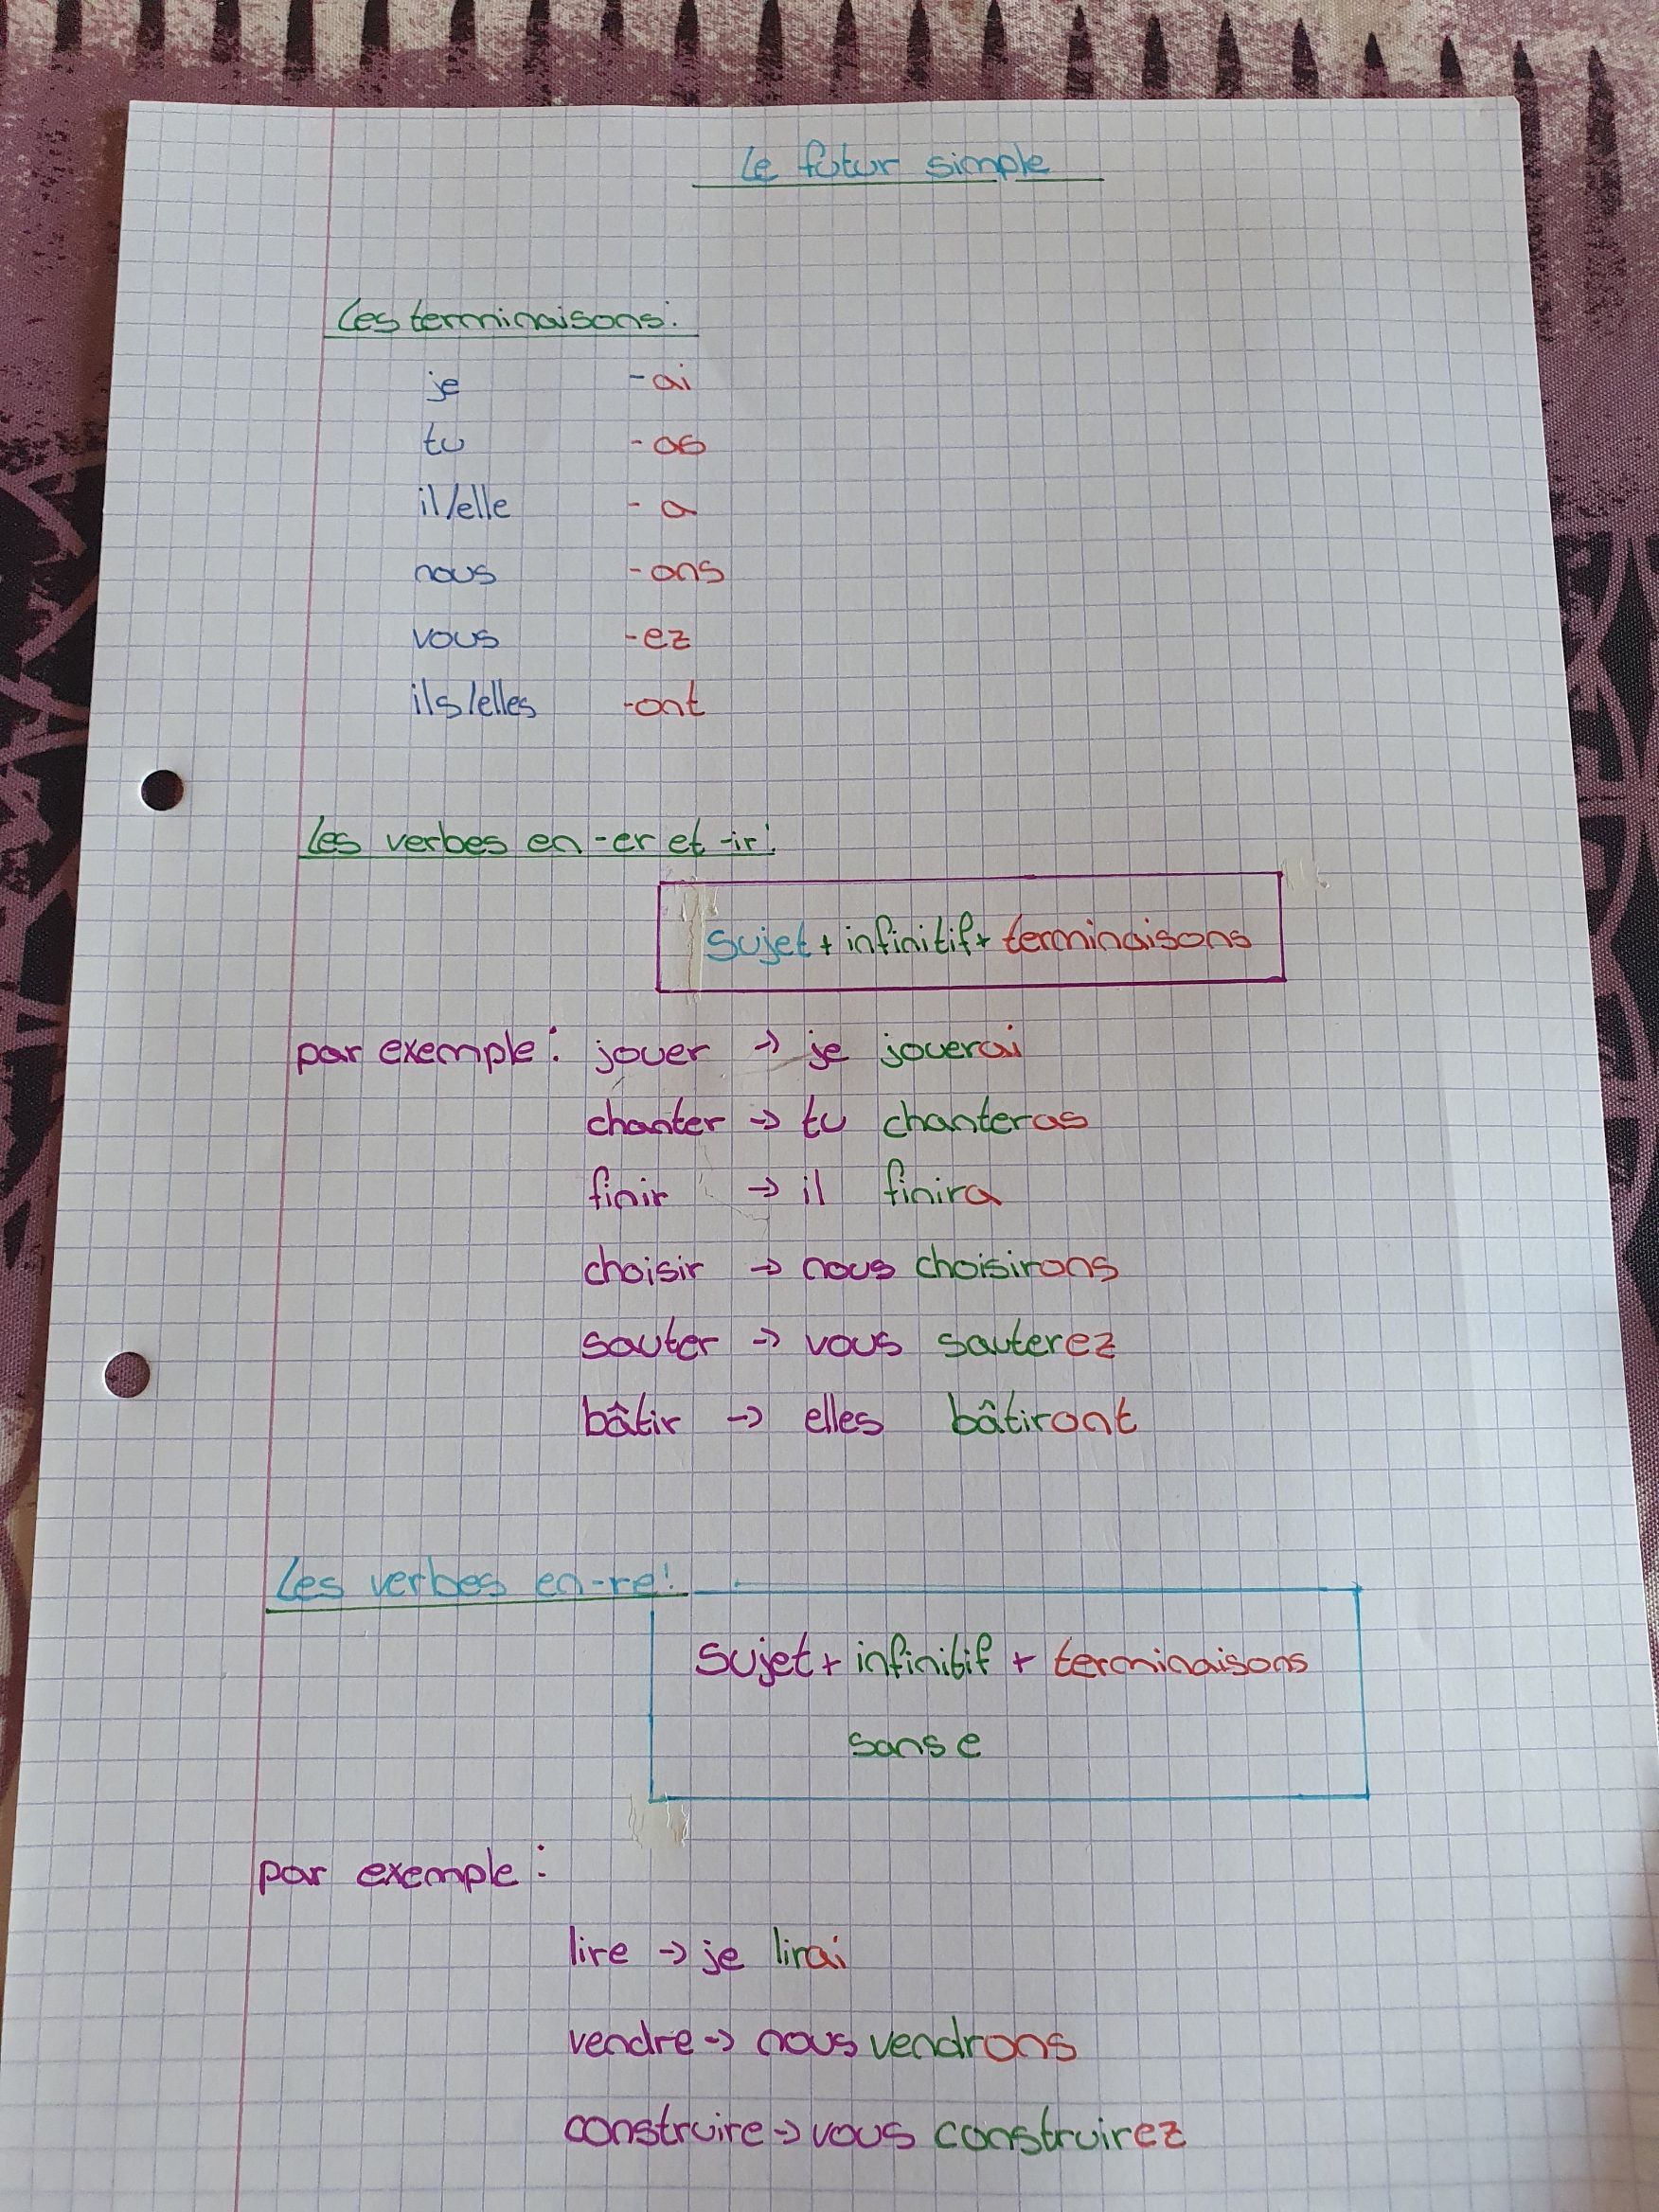 Le futur simple
Les terminaisons:
je -ai
tu -as
il/elle -a
nous -ons
vous -ez
ils/elles -ont
Les verbes en -er et -ir:
sujet + infinitif + terminaisons
par exemple: jouer → je jouerai
chanter → tu chanteras
finir → il finira
choisir → nous choisirons
sauter → vous sauterez
bâtir → elles bâtiront
Les verbes en -re:
sujet + infinitif + terminaisons
sans e
par exemple:
lire → je lirai
vendre → nous vendrons
construire → vous construirez